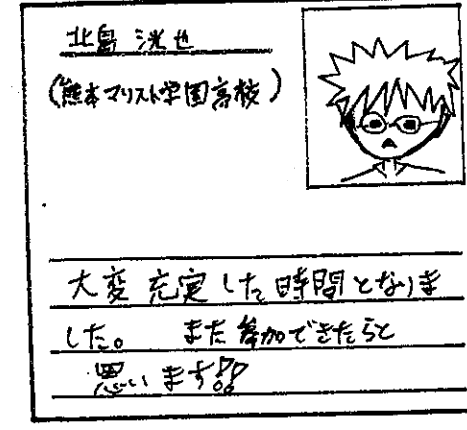 北島 洸也
(熊本マリスト学園高校)
大変 充実した時間となりま
した。 また参加できたらと
思います!!